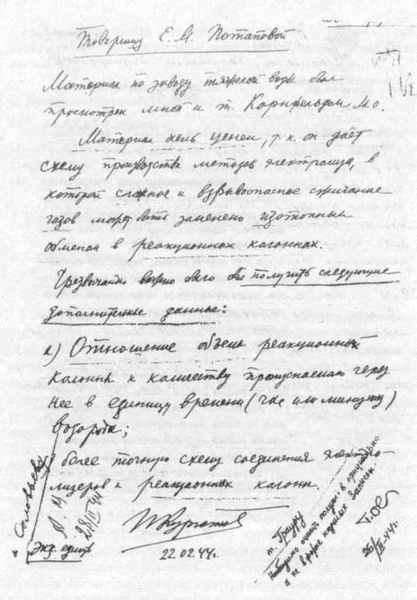 Товарищу Е. М. Потаповой
Материал по заводу тяжелой воды был
просмотрен мной и т. Корнфельдом М.О.
Материал очень ценен, т.к. он даёт
схему производства методом электролиза, в
которой сложное и взрывоопасное сжигание
газов может быть заменено изотопным
обменом в реакционных колоннах.
Чрезвычайно важно было бы получить следующие
дополнительные данные:
а) Отношение объема реакционной
колонны к количеству пропускаемого через
нее в единицу времени (час или минуту)
водорода;
более точную схему соединения электро-
лизеров и реакционных колонн.
И Курчатов
22.02.44.
Экз. един
28/II 44
т.
26/II.44г.